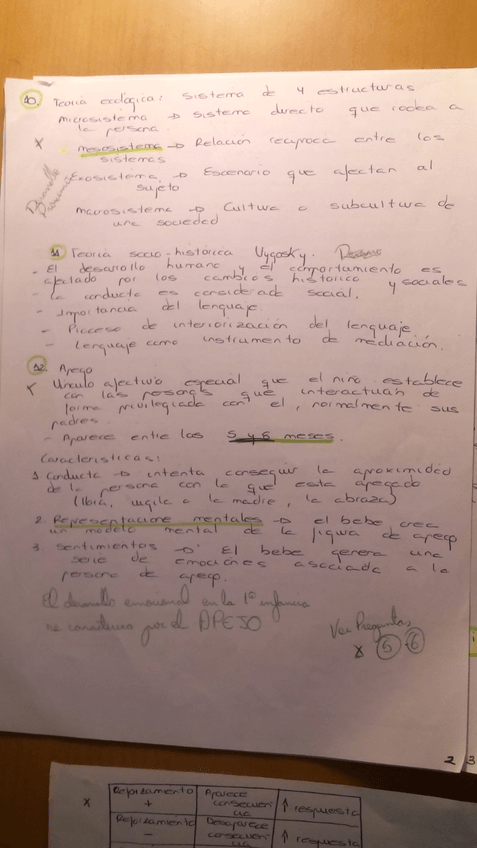 10. Teoría ecológica: Sistema de 4 estructuras
Microsistema → sistema directo que rodea a
la persona.
x mesosistema → Relación recíproca entre los
sistemas
Exosistema → Escenario que afectan al
sujeto
Macrosistema → Cultura o subcultura de
una sociedad
11 Teoría socio-histórica Vygosky.
- El desarrollo humano y el comportamiento es
afectado por los cambios histórico y sociales
- La conducta es considerada social.
- Importancia del lenguaje.
- Proceso de interiorización del lenguaje
- Lenguaje como instrumento de mediación.
12. Apego
x Vínculo afectivo especial que el niño establece
con las personas que interactúan de
forma privilegiada con el, normalmente sus
padres.
- Aparece entre los 5 y 6 meses.
Características:
1 Conducta → intenta conseguir la aproximidad
de la persona con la que esta apegado
(llora, vigila a la madre, la abraza)
2. Representaciones mentales → el bebe crea
un modelo mental de la figura de apego
3 Sentimientos → El bebe genera una
serie de emociones asociada a la
persona de apego.
El desarrollo emocional en la 1ª infancia
se caracteriza por el APEGO
Ver Preguntas
x 5-6
2 3
x Reforzamiento + Aparece consecuencia ↑ respuesta
Reforzamiento - Desaparece consecuencia ↑ respuesta